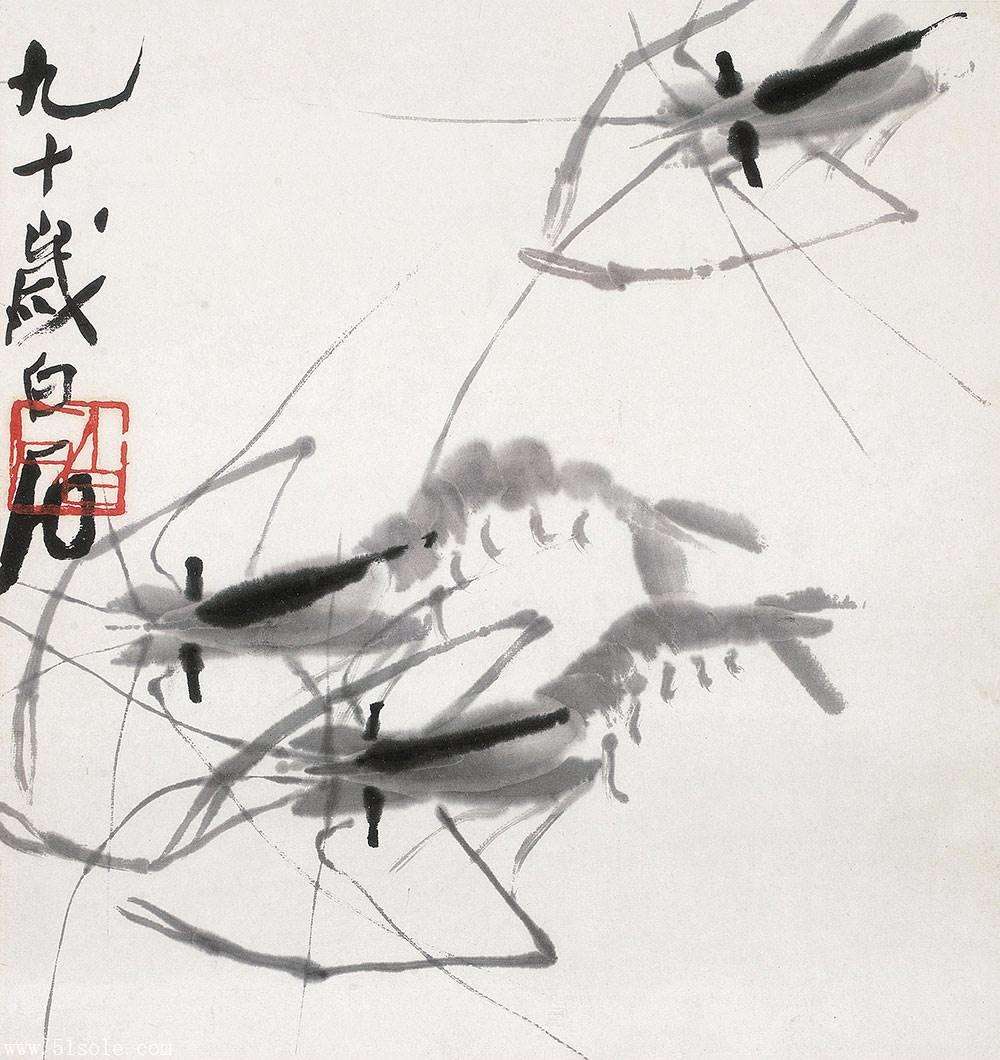 九十歲白石
www.51sole.com